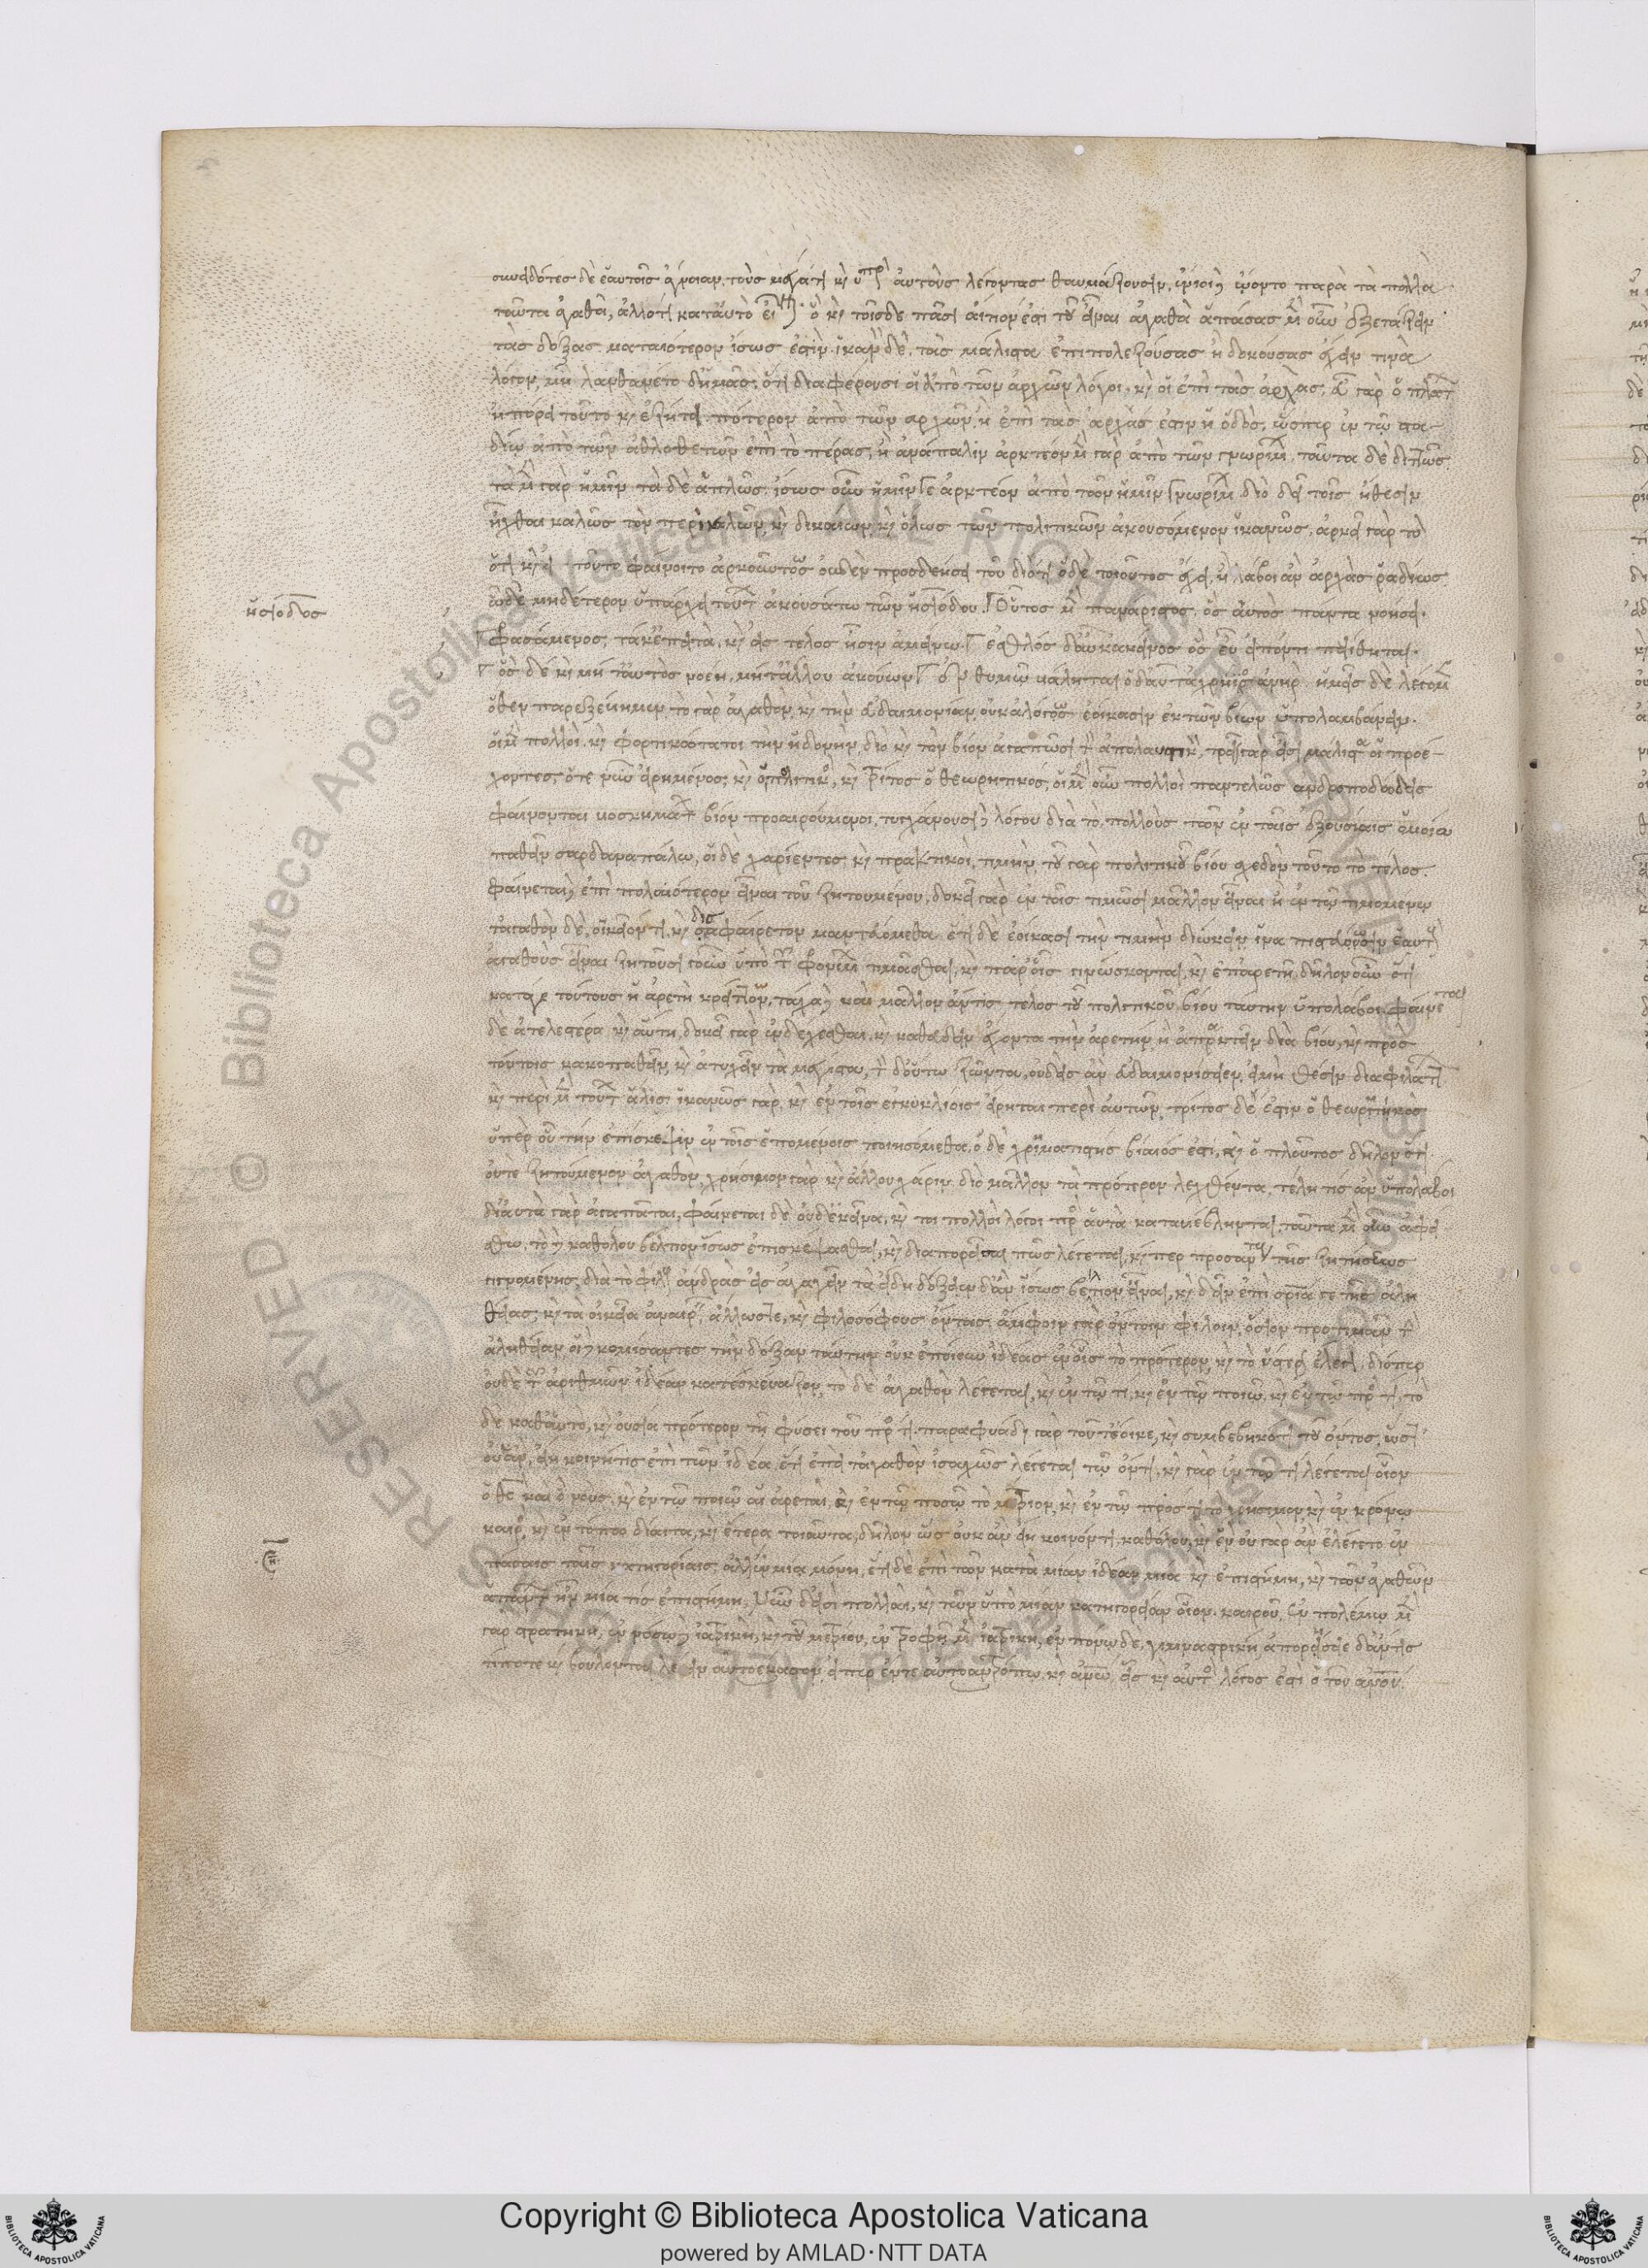 συνειδότες δὲ ἑαυτοῖς ἄγνοιαν τοὺς μέγα τι καὶ ὑπὲρ αὐτοὺς λέγοντας θαυμάζουσιν. ἔνιοι δ ᾤοντο παρὰ τὰ πολλὰ
ταῦτα ἀγαθὰ, ἄλλό τι καθ αὑτὸ εἶναι. ὃ καὶ τοῖσδε πᾶσιν αἴτιόν ἐστι τοῦ εἶναι ἀγαθὰ ἁπάσας μὲν οὖν ἐξετάζειν
τὰς δόξας ματαιότερον ἴσως ἐστὶν. ἱκανὸν δὲ, τὰς μάλιστα ἐπιπολαζούσας ἢ δοκούσας ἔχειν τινὰ
λόγον. μὴ λανθανέτω δ ἡμᾶς, ὅτι διαφέρουσι οἱ ἀπὸ τῶν ἀρχῶν λόγοι. καὶ οἱ ἐπὶ τὰς ἀρχὰς. εὖ γὰρ ὁ πλάτων
ἠπόρει τοῦτο καὶ ἐζήτει. πότερον ἀπὸ τῶν ἀρχῶν, ἢ ἐπὶ τὰς ἀρχάς ἐστιν ἡ ὁδὸς, ὥσπερ ἐν τῷ στα
δίῳ ἀπὸ τῶν ἀθλοθετῶν ἐπὶ τὸ πέρας, ἢ ἀνάπαλιν ἀρκτέον μὲν γὰρ ἀπὸ τῶν γνωρίμων. ταῦτα δὲ διττῶς.
τὰ μὲν γὰρ ἡμῖν τὰ δὲ ἁπλῶς. ἴσως οὖν ἡμῖν γε ἀρκτέον ἀπὸ τῶν ἡμῖν γνωρίμων διὸ δεῖ τοῖς ἤθεσιν
ἦχθαι καλῶς τὸν περὶ καλῶν, καὶ δικαίων, καὶ ὅλως τῶν πολιτικῶν ἀκουσόμενον ἱκανῶς. ἀρχὴ γὰρ τὸ
ὅτι καὶ εἰ τοῦτο φαίνοιτο ἀρκούντως οὐδὲν προσδεήσει τοῦ διότι ὁ δὲ τοιοῦτος ἔχει, ἢ λάβοι ἂν ἀρχὰς ῥαδίως.
ᾧ δὲ μηδέτερον ὑπάρχει τούτων ἀκουσάτω τῶν ἡσιόδου. Οὗτος μὲν πανάριστος, ὃς αὐτὸς πάντα νοήσει.
ἡσίοδος
φρασάμενος, τά κ ἔπειτα, καὶ ἐς τέλος ᾖσιν ἀμείνω. ἐσθλὸς δ αὖ κἀκεῖνος ὃς εὖ εἰπόντι πείθηται.
ὃς δέ κε μή τ αὐτὸς νοέῃ, μήτ ἄλλου ἀκούων ἐν θυμῷ βάληται ὁ δ αὖτ ἀχρήϊος ἀνήρ. ἡμεῖς δὲ λέγωμεν
ὅθεν παρεξέβημεν. τὸ γὰρ ἀγαθὸν, καὶ τὴν εὐδαιμονίαν, οὐκ ἀλόγως ἐοίκασιν ἐκ τῶν βίων ὑπολαμβάνειν.
οἱ μὲν πολλοὶ. καὶ φορτικώτατοι τὴν ἡδονὴν, διὸ καὶ τὸν βίον ἀγαπῶσι τὸν ἀπολαυστικόν. τρεῖς γάρ εἰσι μάλιστα οἱ προέ
χοντες, ὅ τε νῦν εἰρημένος, καὶ ὁ πολιτικὸς, καὶ τρίτος ὁ θεωρητικός. οἱ μὲν οὖν πολλοὶ παντελῶς ἀνδραποδώδεις
φαίνονται βοσκημάτων βίον προαιρούμενοι, τυγχάνουσι δὲ λόγου διὰ τὸ πολλοὺς τῶν ἐν ταῖς ἐξουσίαις ὁμοιο
παθεῖν σαρδαναπάλῳ. οἱ δὲ χαρίεντες καὶ πρακτικοὶ, τιμὴν τοῦ γὰρ πολιτικοῦ βίου σχεδὸν τοῦτο τὸ τέλος.
φαίνεται δ ἐπιπολαιότερον εἶναι τοῦ ζητουμένου, δοκεῖ γὰρ ἐν τοῖς τιμῶσι μᾶλλον εἶναι ἢ ἐν τῷ τιμωμένῳ
τἀγαθὸν δὲ, οἰκεῖόν τι, καὶ δυσαφαίρετον μαντευόμεθα ἔτι δὲ ἐοίκασι τὴν τιμὴν διώκειν ἵνα πιστεύσωσιν ἑαυτοὺς
ἀγαθοὺς εἶναι ζητοῦσι γοῦν ὑπὸ τῶν φρονίμων τιμᾶσθαι, καὶ παρ οἷς γινώσκονται, καὶ ἐπ ἀρετῇ, δῆλον οὖν ὅτι
κατά γε τούτους ἡ ἀρετὴ κρείττων, τάχα δὲ καὶ μᾶλλον ἄν τις τέλος τοῦ πολιτικοῦ βίου ταύτην ὑπολάβοι. φαίνεται
δὲ ἀτελεστέρα καὶ αὕτη. δοκεῖ γὰρ ἐνδέχεσθαι, καὶ καθεύδειν ἔχοντα τὴν ἀρετὴν, ἢ ἀπρακτεῖν διὰ βίου, καὶ πρὸς
τούτοις κακοπαθεῖν, καὶ ἀτυχεῖν τὰ μέγιστα, τὸν δ οὕτω ζῶντα, οὐδεὶς ἂν εὐδαιμονίσειεν, εἰ μὴ θέσιν διαφυλάττων
καὶ περὶ μὲν τούτων ἅλις. ἱκανῶς γὰρ, καὶ ἐν τοῖς ἐγκυκλίοις εἴρηται περὶ αὐτῶν, τρίτος δέ ἐστιν ὁ θεωρητικός.
ὑπὲρ οὗ τὴν ἐπίσκεψιν ἐν τοῖς ἑπομένοις ποιησόμεθα. ὁ δὲ χρηματιστὴς βίαιός ἐστι, καὶ ὁ πλοῦτος δῆλον ὅτι
οὔτε ζητούμενον ἀγαθὸν, χρήσιμον γὰρ καὶ ἄλλου χάριν. διὸ μᾶλλον τὰ πρότερον λεχθέντα, τέλη τις ἂν ὑπολάβοι
δι αὑτὰ γὰρ ἀγαπᾶται. φαίνεται δὲ οὐδ ἐκεῖνα, καὶ τοι πολλοὶ λόγοι πρὸς αὐτὰ καταβέβληνται. ταῦτα μὲν οὖν ἀφεί
σθω. τὸ δὲ καθόλου βέλτιον ἴσως ἐπισκέψασθαι, καὶ διαπορῆσαι πῶς λέγεται, καί περ προσάντους τῆς ζητήσεως
γινομένης, διὰ τὸ φίλους ἄνδρας εἰσαγαγεῖν τὰ εἴδη δόξειεν δ ἂν ἴσως βέλτιον εἶναι, καὶ δεῖν ἐπὶ σωτηρίᾳ γε τῆς ἀλη
θείας, καὶ τὰ οἰκεῖα ἀναιρεῖν, ἄλλως τε, καὶ φιλοσόφους ὄντας. ἀμφοῖν γὰρ ὄντοιν φίλοιν, ὅσιον προτιμᾶν τὴν
ἀλήθειαν. οἱ δὲ κομίσαντες τὴν δόξαν ταύτην οὐκ ἐποίουν ἰδέας ἐν οἷς τὸ πρότερον, καὶ τὸ ὕστερον ἔλεγον, διόπερ
οὐδὲ τῶν ἀριθμῶν ἰδέαν κατεσκεύαζον, τὸ δὲ ἀγαθὸν λέγεται, καὶ ἐν τῷ τί, καὶ ἐν τῷ ποιῷ, καὶ ἐν τῷ πρός τι, τὸ
δὲ καθ αὑτὸ, καὶ οὐσία πρότερον τῇ φύσει τοῦ πρός τι. παραφυάδι γὰρ τοῦτ ἔοικε, καὶ συμβεβηκότι τοῦ ὄντος, ὥστε
οὐκ ἂν, εἴη κοινή τις ἐπὶ τῶν ἰδέα. ἔτι ἐπεὶ τἀγαθὸν ἰσαχῶς λέγεται τῷ ὄντι, καὶ γὰρ ἐν τῷ τί λέγεται οἷον
ὁ θεὸς καὶ ὁ νοῦς. καὶ ἐν τῷ ποιῷ αἱ ἀρεταὶ, καὶ ἐν τῷ ποσῷ τὸ μέτριον, καὶ ἐν τῷ πρός τι τὸ χρήσιμον, καὶ ἐν χρόνῳ
καιρὸς, καὶ ἐν τόπῳ δίαιτα, καὶ ἕτερα τοιαῦτα, δῆλον ὡς οὐκ ἂν εἴη κοινόν τι καθόλου, καὶ ἓν οὐ γὰρ ἂν ἐλέγετο ἐν
πάσαις ταῖς κατηγορίαις, ἀλλ ἐν μιᾷ μόνῃ. ἔτι δὲ ἐπὶ τῶν κατὰ μίαν ἰδέαν μία καὶ ἐπιστήμη, καὶ τῶν ἀγαθῶν
ἁπάντων ἦν μία τις ἐπιστήμη, νῦν δ εἰσὶ πολλαὶ, καὶ τῶν ὑπὸ μίαν κατηγορίαν οἷον καιροῦ. ἐν πολέμῳ μὲν
γὰρ στρατηγική, ἐν νόσῳ δ ἰατρικὴ, καὶ τοῦ μετρίου, ἐν τροφῇ μὲν ἰατρικὴ, ἐν πόνῳ δὲ, γυμναστική, ἀπορήσειε δ ἄν τις
τί ποτε καὶ βούλονται λέγειν αὐτοέκαστον, εἴπερ ἔν τε αὐτοανθρώπῳ, καὶ ἀνθρώπῳ, εἷς καὶ αὐτὸς λόγος ἐστι ὁ τοῦ ἀνθρώπου.
Copyright © Biblioteca Apostolica Vaticana
powered by AMLAD·NTT DATA